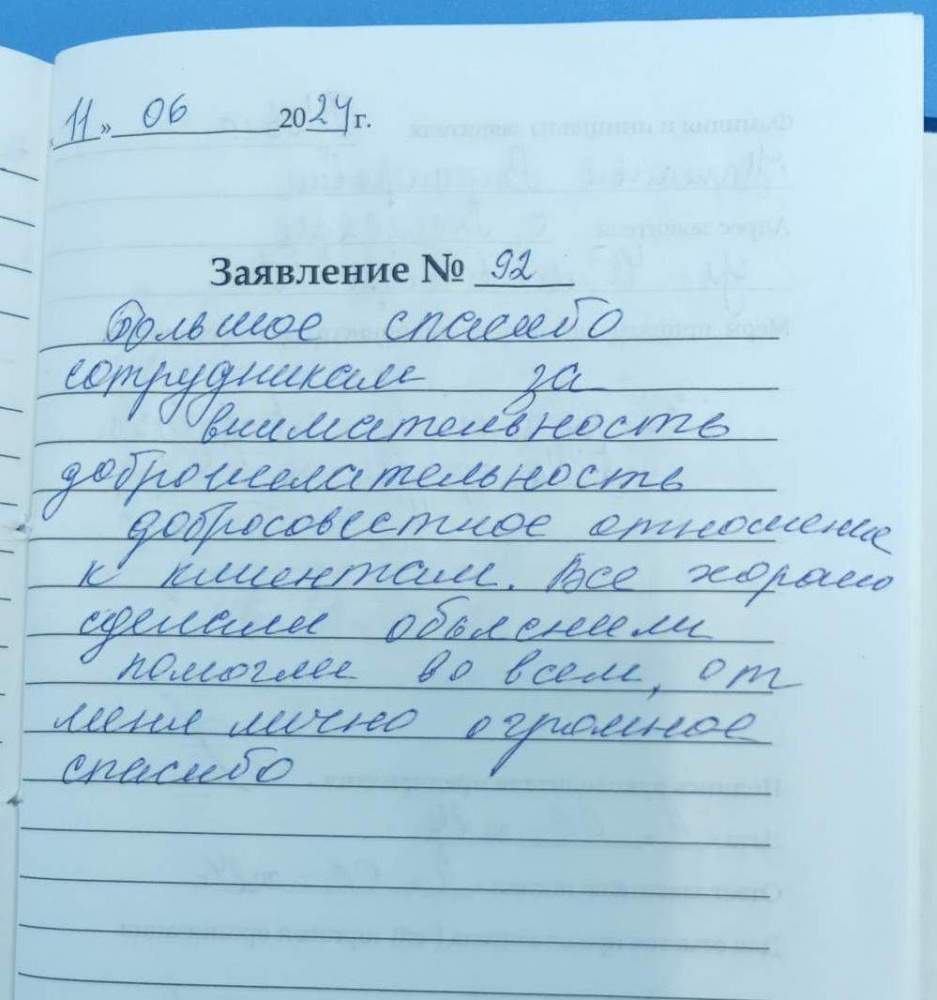 «11» 06 2024 г.
Заявление № 92
Большое спасибо
сотрудникам за
внимательность
доброжелательность
добросовестное отношение
к клиентам. Все хорошо
сделали объяснили
помогли во всем, от
меня лично огромное
спасибо